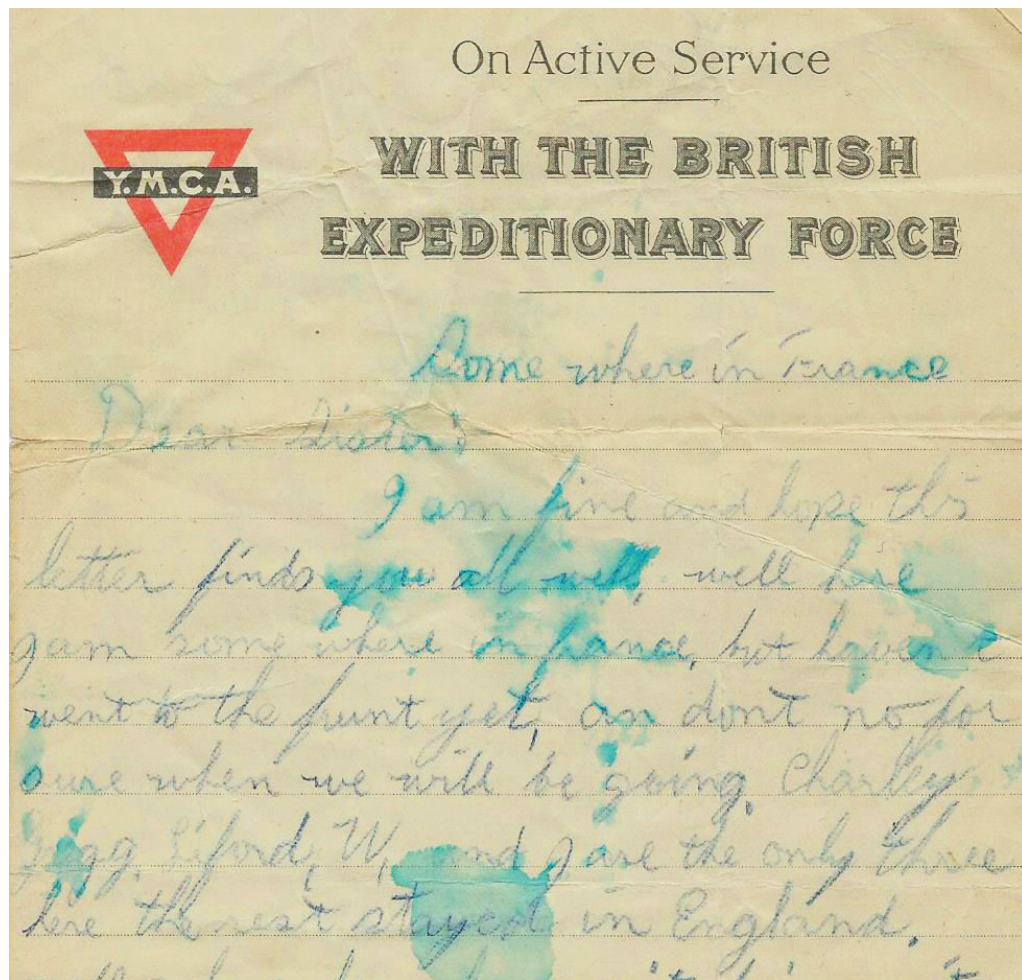 On Active Service
Y.M.C.A.
WITH THE BRITISH
EXPEDITIONARY FORCE
Some where in France
Dear Sister;
I am fine and hope this
letter finds you all well, well here
I am some where in france, but haven't
went to the frunt yet, an dont no for
sure when we will be going. Charley
Liford, W, and I are the only three
here the rest stayed in England.